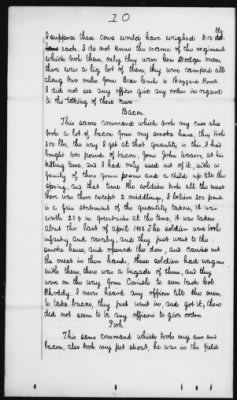 20
I suppose these cows would have weighed 300
each. I do not know the name of the regiment
which took them, only they were Gen Dodges men
there was a big lot of them, they were camped all
along two miles from Bear land to Buzzard Roost.
I did not see any officer give any orders in regard
to the taking of these cows
Bacon.
This same command which took my cows also
took a lot of bacon from my smoke house, they took
500 lbs. the way I get at that quantity is this, I had
bought 600 pounds of bacon, from John at
killing time, and I had only used out of it, with a
family of three grown persons and a child up till the
spring, and that time the soldiers took all the meat
there was there except 2 middlings, I believe 500 pounds
is a fair statement of the quantity taken, it was
worth 25¢ in greenbacks at the time, it was taken
about the last of April 1863. The soldiers were both
infantry and cavalry, and they just went to the
smoke house, and opened the door, and carried out
the meat in their hands, these soldiers had wagons
with them, there was a brigade of them, and they
were on the way from Corinth to
Rhoddy, I never heard any officer tell the men
to take bacon, they just went in, and got it, there
did not seem to be any officers to give orders
Pork
This same command which took my cows and
bacon, also took my fat shoat, he was in the field